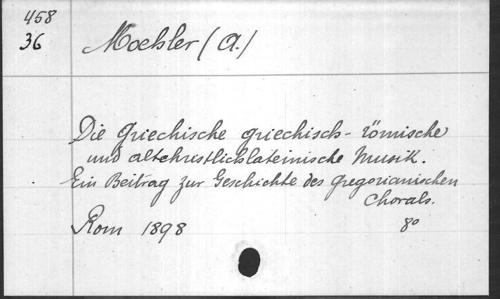 458
36
Moehler (A.)
Die Griechische griechisch-römische
und altchristlichlateinische Musik.
Ein Beitrag zur Geschichte des gregorianischen
Chorals.
Rom 1898 8º